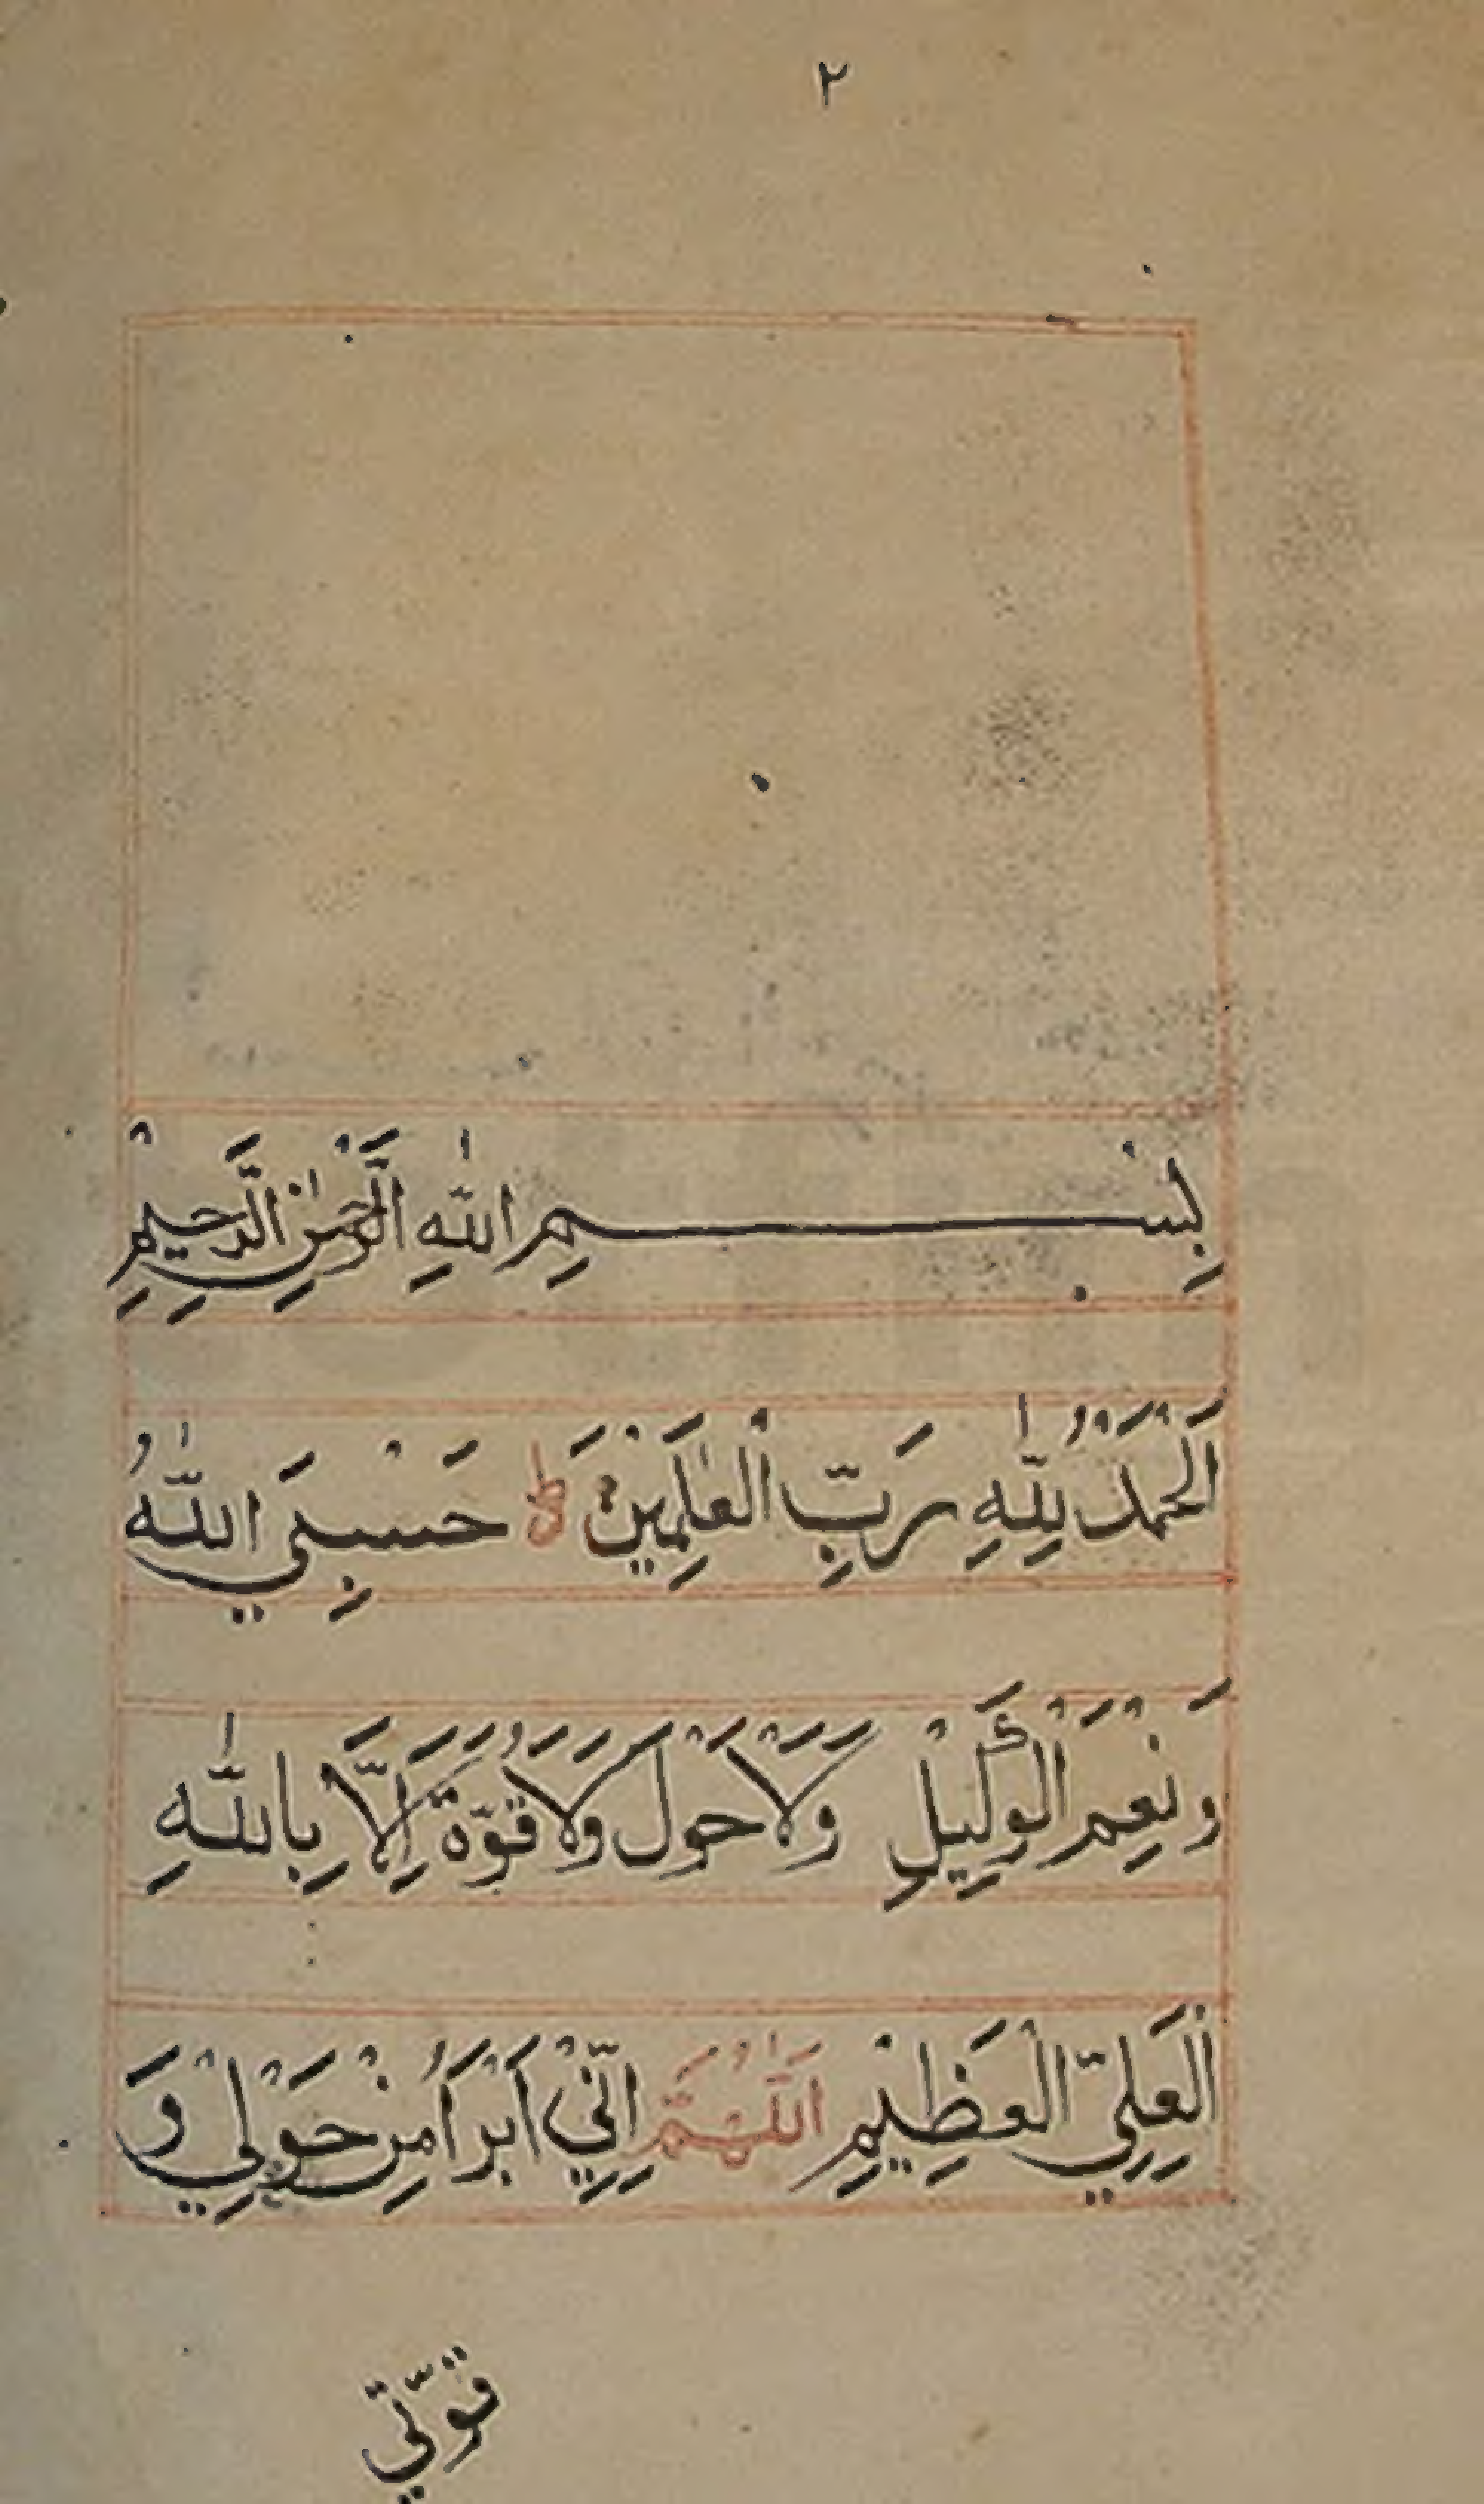 ٢
بِسْمِ اللّٰهِ الرَّحْمٰنِ الرَّحِيْمِ
اَلْحَمْدُ لِلّٰهِ رَبِّ الْعٰلَمِيْنَ ط حَسْبِيَ اللّٰهُ
وَنِعْمَ الْوَكِيْلِ وَلَاحَوْلَ وَلَاقُوَّةَ اِلَّا بِاللّٰهِ
الْعَلِيِّ الْعَظِيْمِ اَللّٰهُمَّ اِنِّيْ اَبْرَاُ مِنْ حَوْلِيْ وَ
قوّتي